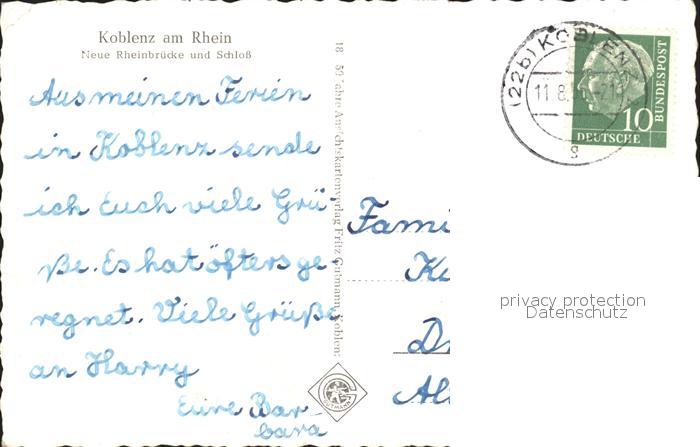 Koblenz am Rhein
Neue Rheinbrücke und Schloß
Aus meinen Ferien
in Koblenz sende
ich Euch viele Grü-
ße. Es hat öfters ge-
regnet. Viele Grüße
an Harry
Eure Bar-
bara
18 50 Jahre Ansichtskartenverlag Fritz Gutmann, Koblenz
GUTMANN
(22b) KOBLEN
11.8.
g
10
BUNDESPOST
DEUTSCHE
Fami
privacy protection
Datenschutz